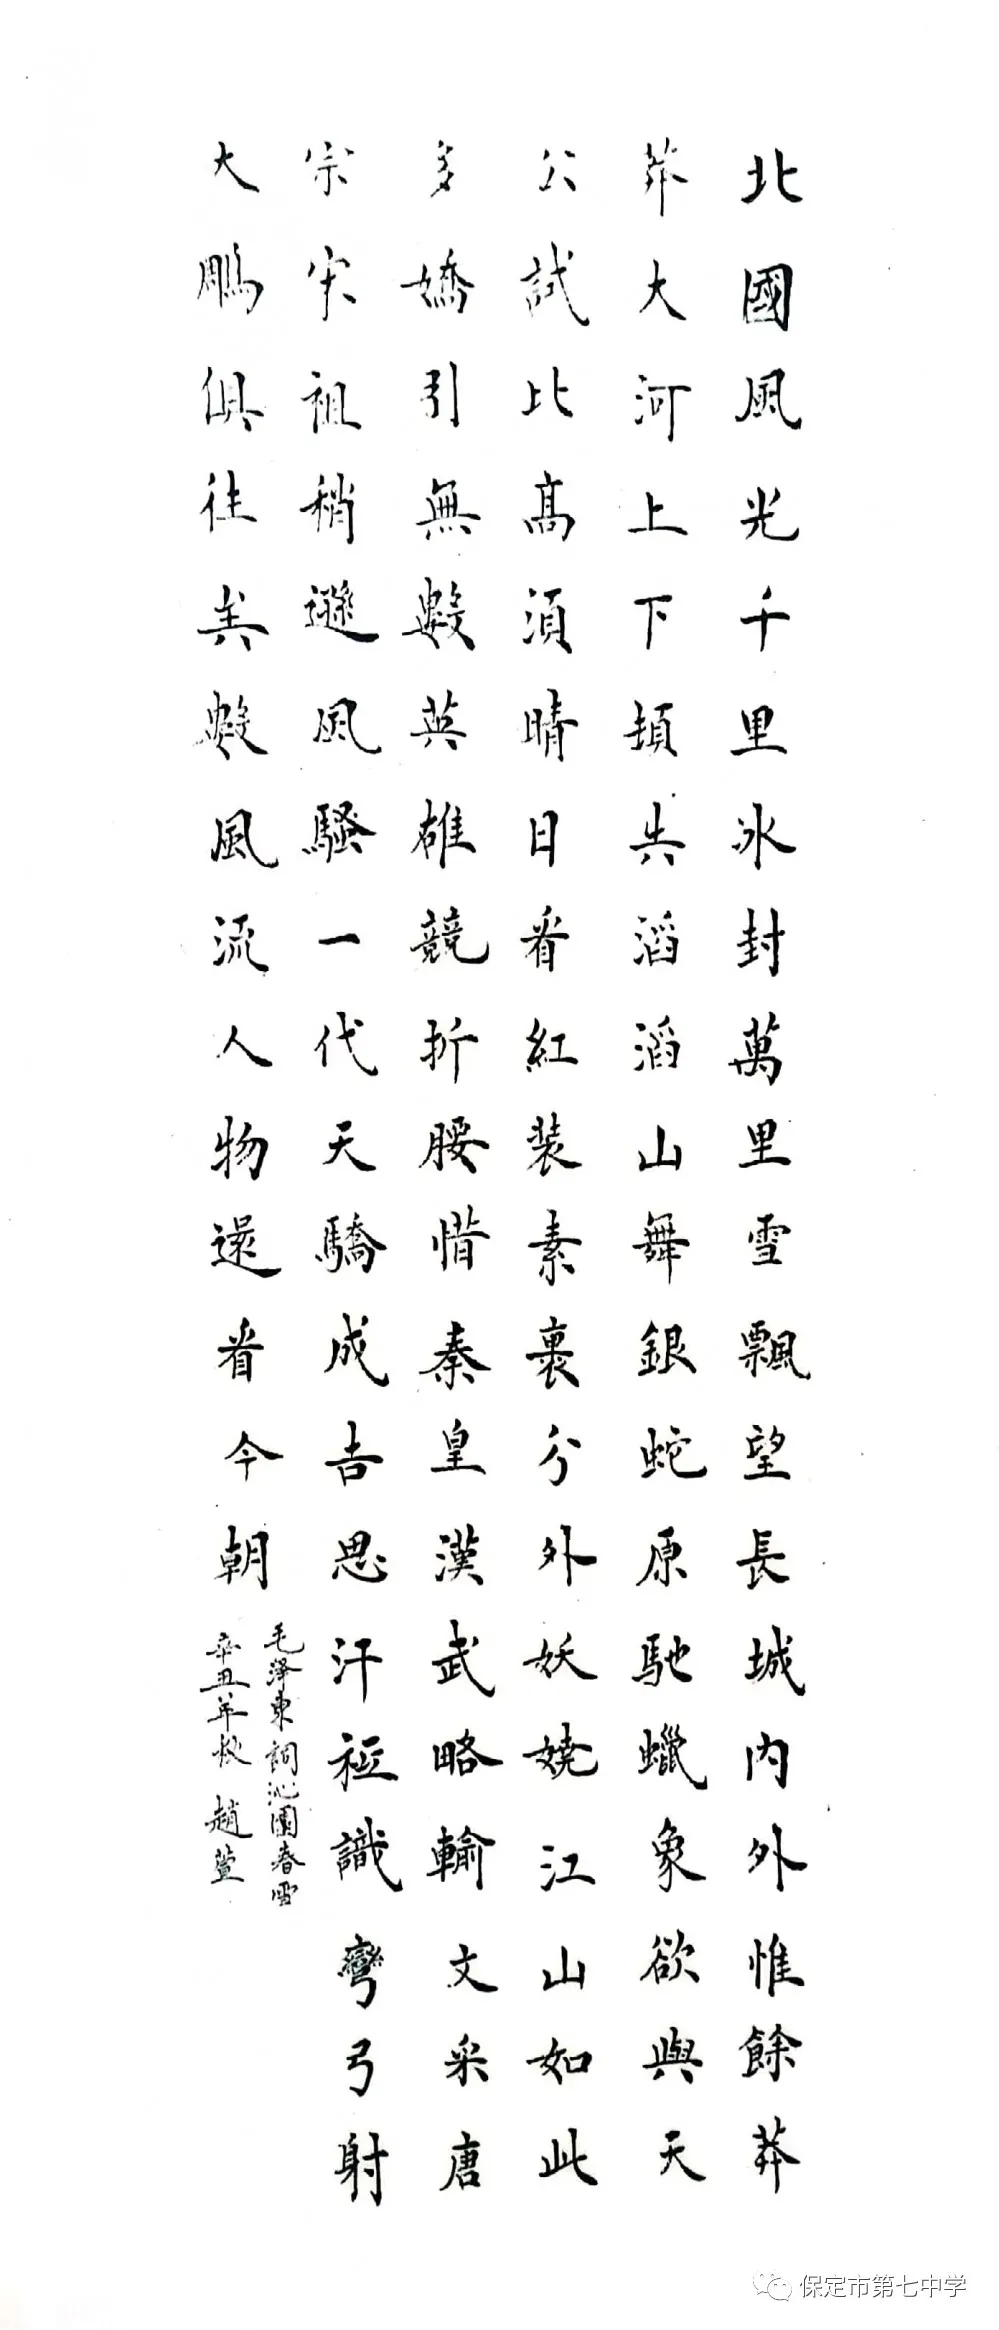 北國風光千里冰封萬里雪飄望長城内外惟餘莽
莽大河上下頓失滔滔山舞銀蛇原馳蠟象欲與天
公試比高須晴日看紅装素裹分外妖嬈江山如此
多嬌引無數英雄競折腰惜秦皇漢武略輸文采唐
宗宋祖稍遜風騷一代天驕成吉思汗祗識彎弓射
大鵰俱往矣數風流人物還看今朝
毛澤東詞沁園春雪
辛丑年秋 趙萱
保定市第七中学